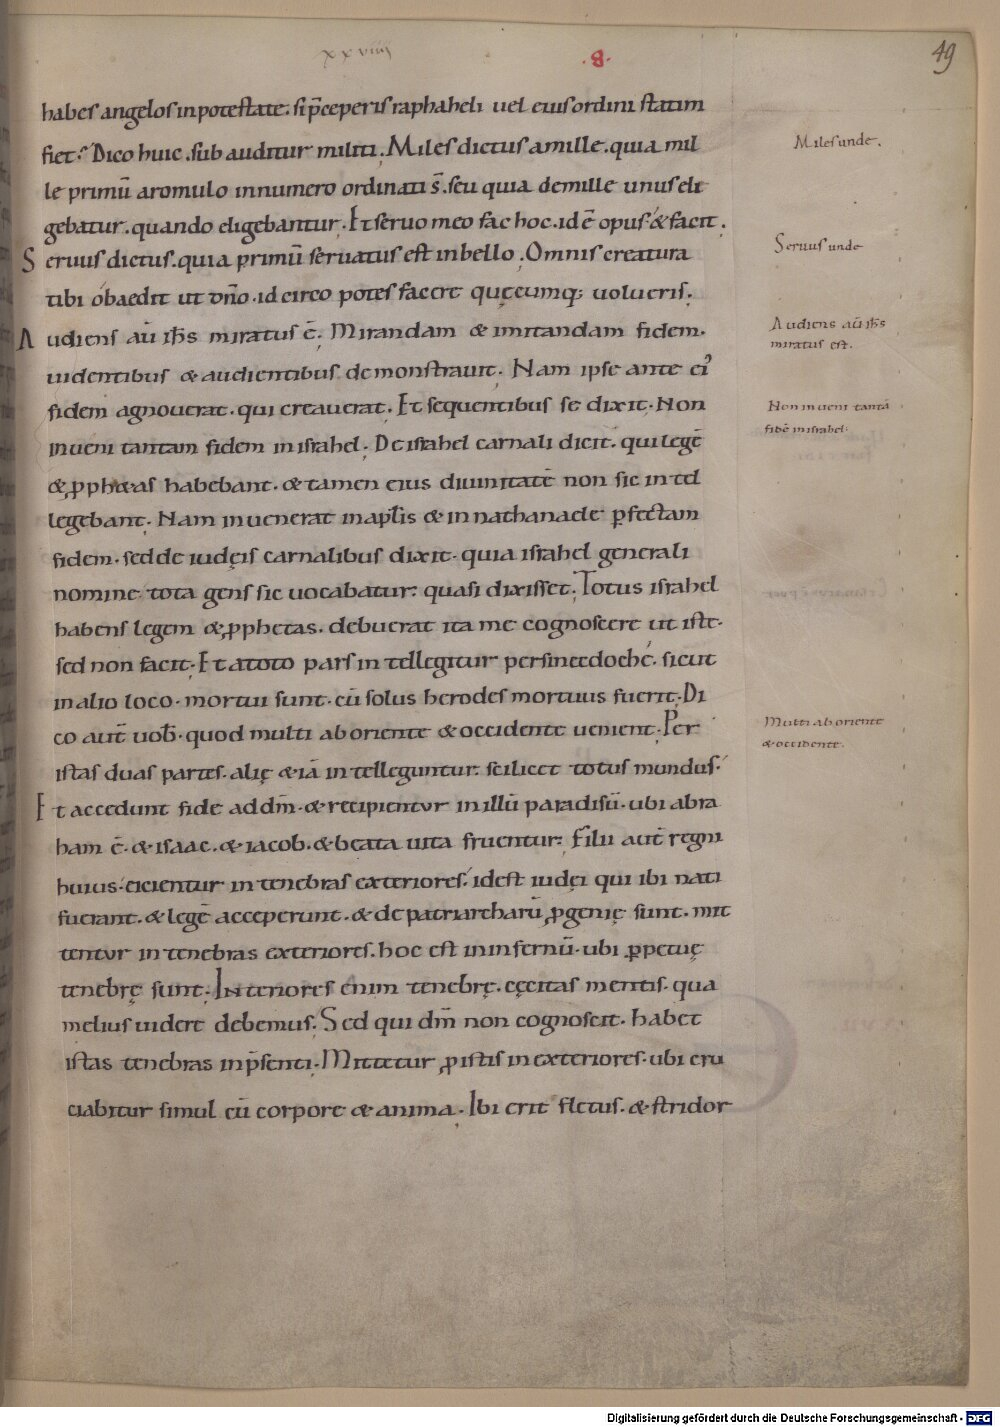 xxviiii
·B·
49
habes angelos in potestate. si p̄ceperis raphaheli uel eius ordini statim
fiet; Dico huic. sub auditur militi. Miles dictus a mille. quia mil
le primū a romulo in numero ordinati s̄. seu quia de mille unus eli
gebatur. quando eligebantur. Et seruo meo fac hoc. id ē opus. & facit.
Seruus dictus. quia primū seruatus est in bello. Omnis creatura
tibi obaedit ut dn̄o. id circo potes facere quęcumq; uolueris.
Audiens aū ih̄s miratus ē. Mirandam & imitandam fidem.
uidentibus & audientibus demonstrauit. Nam ipse ante ei᾽
fidem agnouerat. qui creauerat. Et sequentibus se dixit. Non
inueni tantam fidem in israhel. De israhel carnali dicit. qui legē
& ꝓph&as habebant. & tamen eius diuinitatē non sic intel
legebant. Nam inuenerat in apl̄is & in nathanaele ꝑfectam
fidem. sed de iudęis carnalibus dixit. quia israhel generali
nomine tota gens sic uocabatur. quasi dixisset. Totus israhel
habens legem & ꝓphetas. debuerat ita me cognoscere ut iste.
sed non facit. Et a toto pars intellegitur per sinecdochē. sicut
in alio loco. mortui sunt. cū solus herodes mortuus fuerit. Di
co aut̄ uob̄. quod multi ab oriente & occidente uenient. Per
istas duas partes. alię & iā intelleguntur. scilicet totus mundus.
Et accedunt fide ad dm̄. & recipientur in illū paradisū. ubi abra
ham ē. & isaac. & iacob. & beata uita fruentur. Filii aut̄ regni
huius. eicientur in tenebras exteriores. id est iudęi qui ibi nati
fuerant. & legē acceperunt. & de patriarcharū ꝓgenie sunt. mit
tentur in tenebras exteriores. hoc est in infernū. ubi ꝑpetuę
tenebrę sunt. Interiores enim tenebrę. cęcitas mentis. qua
melius uidere debemus. Sed qui dm̄ non cognoscit. habet
istas tenebras in p̄senti. Mittetur ꝓ istis in exteriores. ubi cru
ciabitur simul cū corpore & anima. Ibi erit fletus. & stridor
Miles unde.
Seruus unde
Audiens aū ih̄s
miratus est.
Non inueni tantā
fidē in israhel.
Multi ab oriente
& occidente.
Digitalisierung gefördert durch die Deutsche Forschungsgemeinschaft - DFG